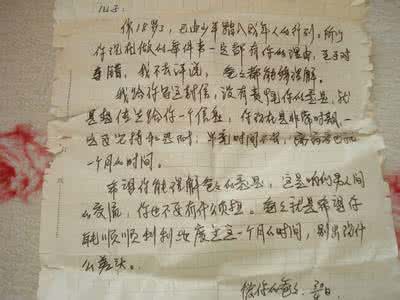 你18岁了，已由少年踏入成年人的行列，所以
你现在做的每件事一定都有你的理由，至于对
与错，我不去评说，爸爸都能够理解。
我给你写这封信，没有责怪你的意思，就
是想传达给你一个信息，你现在是非常时期，一
定要坚持和忍耐，毕竟时间不多，离高考也就
一个月的时间。
希望你能理解爸爸的意思，这是咱们男人间
的交流，你也不要有什么烦恼。爸爸就是希望你
能顺顺利利地度过这一个月的时间，别出现什
么差头。
你的爸爸